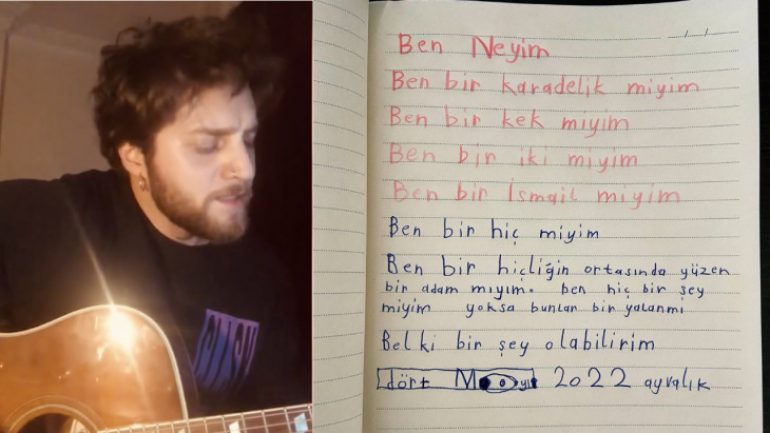 Ben Neyim
Ben bir karadelik miyim
Ben bir kek miyim
Ben bir iki miyim
Ben bir İsmail miyim
Ben bir hiç miyim
Ben bir hiçliğin ortasında yüzen
bir adam mıyım. ben hiç bir şey
miyim yoksa bunlar bir yalanmı
Belki bir şey olabilirim
dört 2022 ayvalık